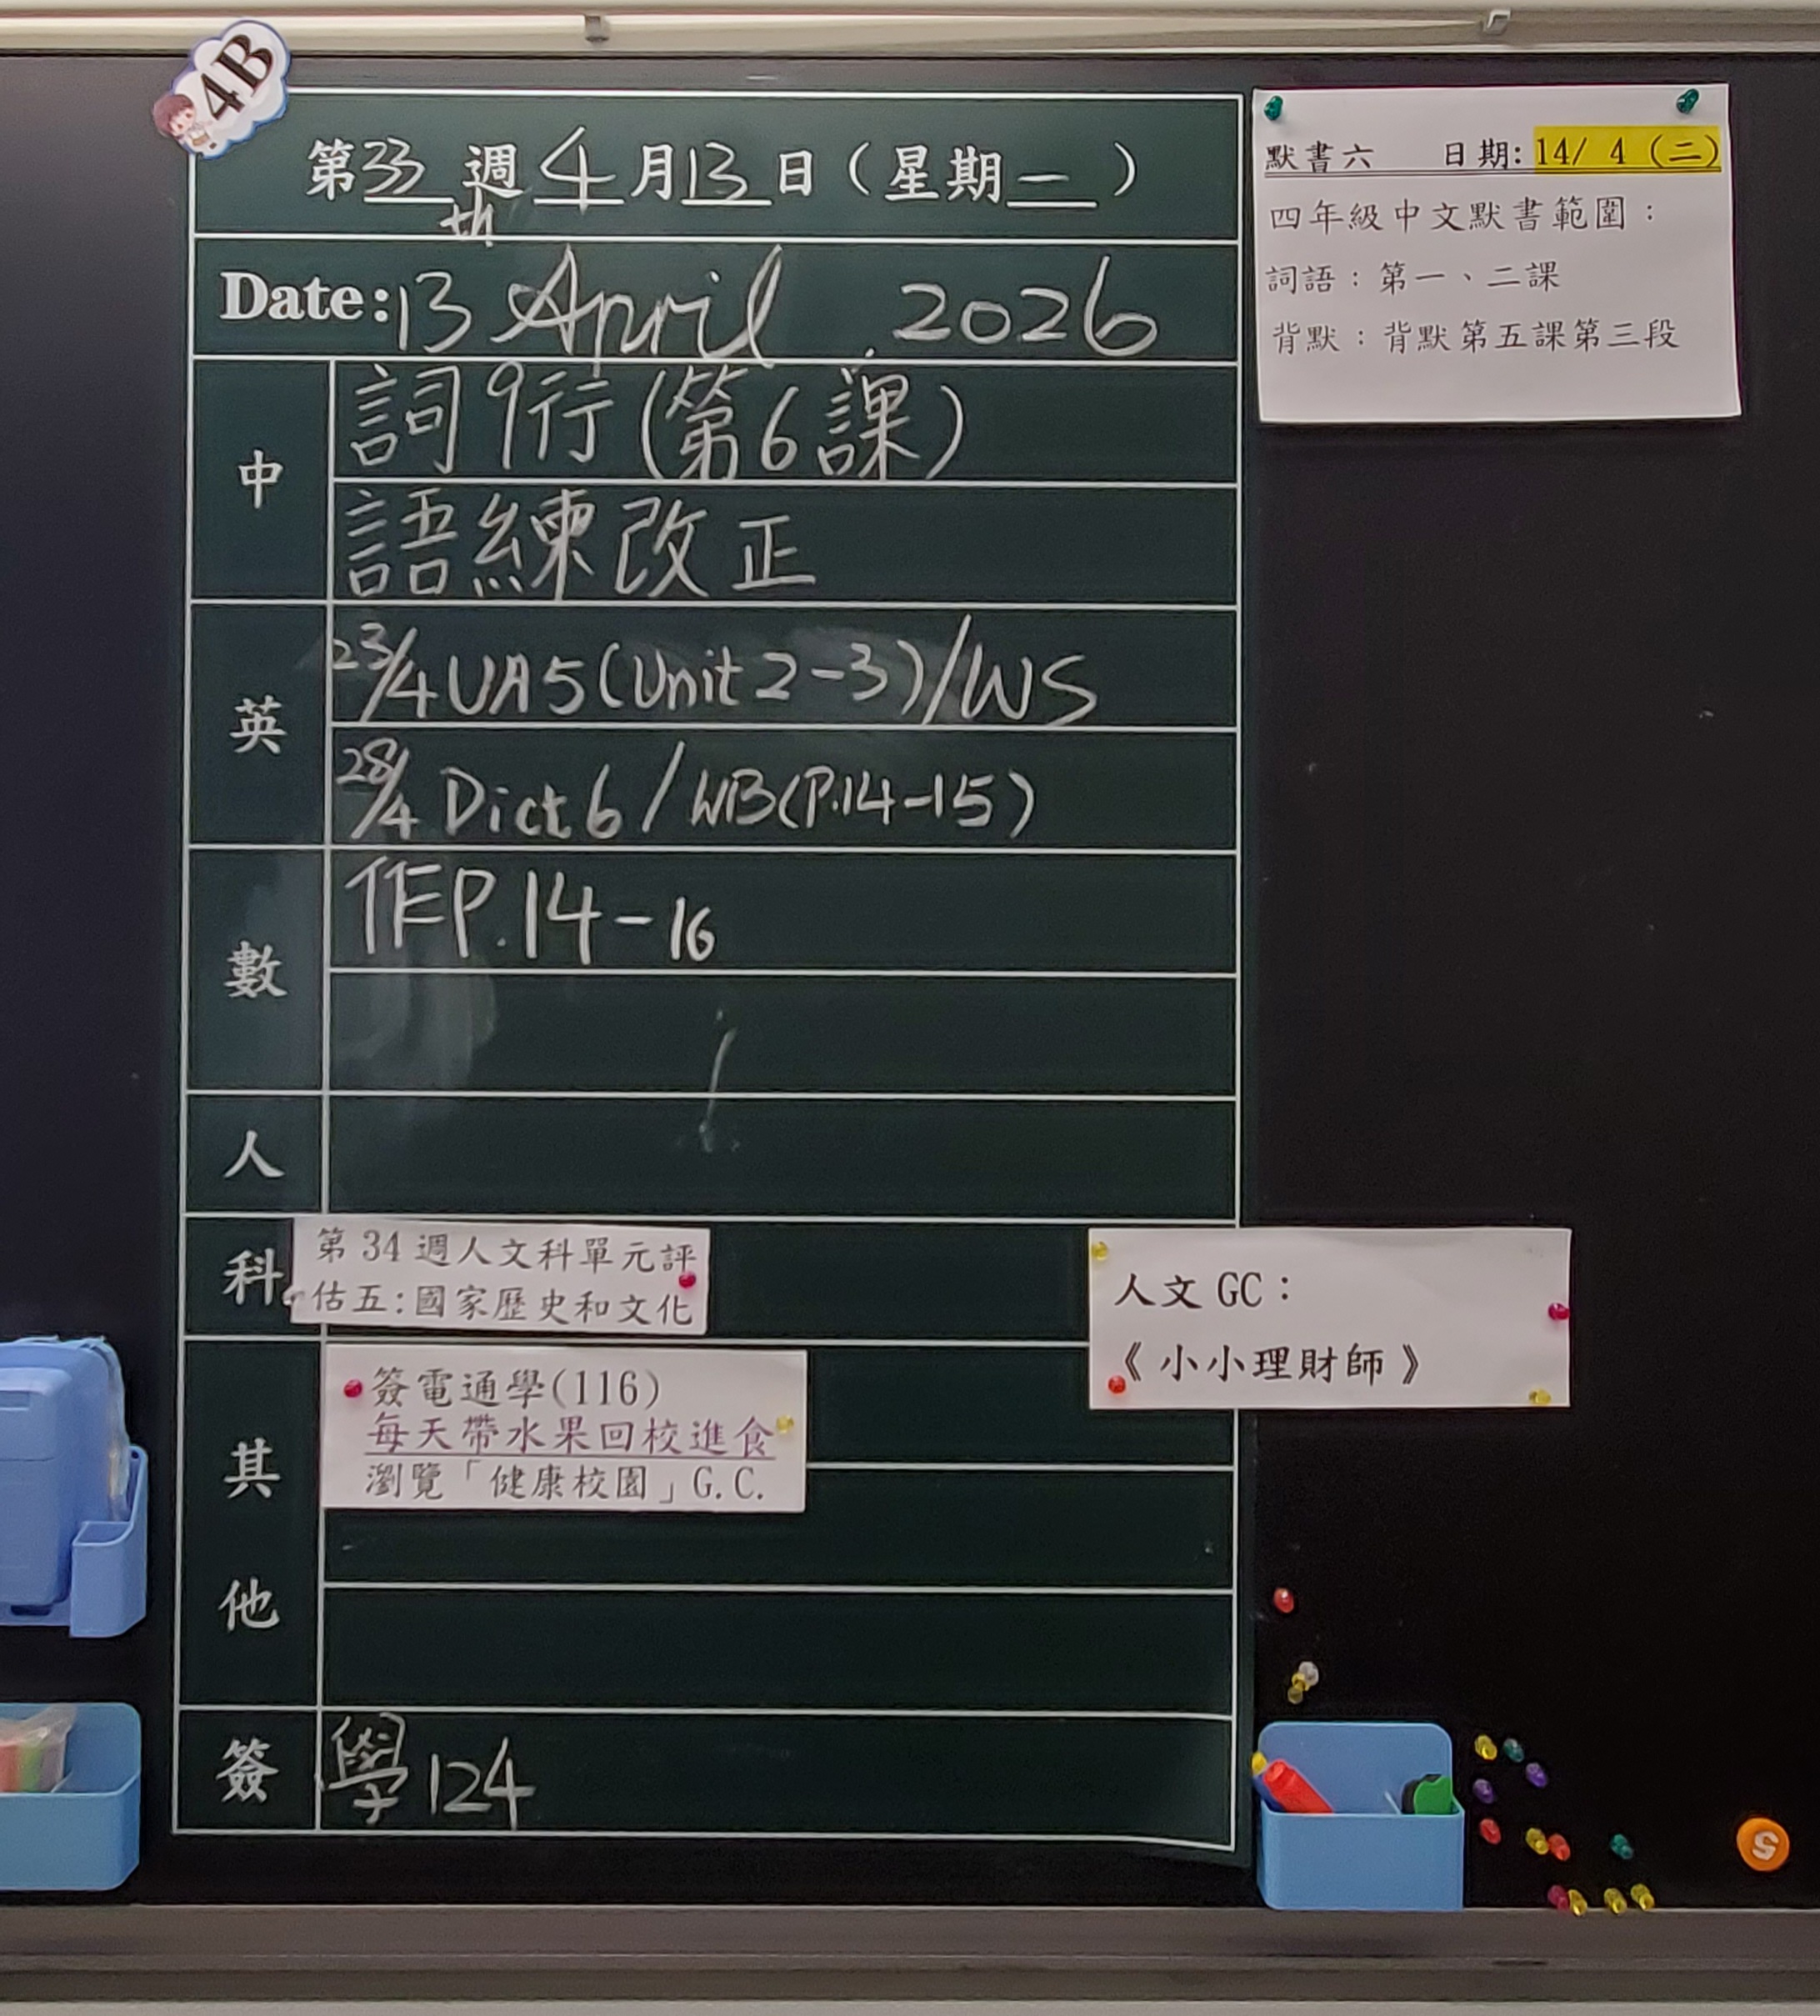 4B
第33週4月13日（星期一）
Date: 13th April, 2026
中
詞9行(第6課)
語練改正
英
23/4 UA5(Unit 2-3)/WS
28/4 Dict 6/WB(P.14-15)
數
TEP.14-16
人
科
第34週人文科單元評
估五:國家歷史和文化
其
他
簽電通學(116)
每天帶水果回校進食
瀏覽「健康校園」G.C.
簽
學124
默書六 日期: 14/ 4 (二)
四年級中文默書範圍：
詞語：第一、二課
背默：背默第五課第三段
人文 GC：
《小小理財師》
5